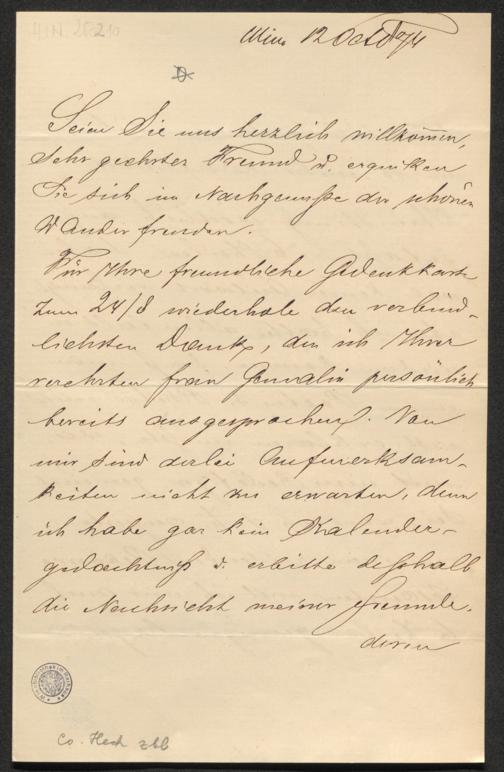 H.I.N. 25.210
Wien 12 Octob/94
Seien Sie uns herzlich willkommen,
Sehr geehrter Freund u. erquiken
Sie sich im Nachgenuße der schönen
Wanderfreuden.
Für Ihre freundliche Gedenkkarte
zum 24/8 wiederhole den verbind-
lichsten Dank, den ich Ihrer
verehrten Frau Gemalin persönlich
bereits ausgesprochen. Von
mir sind derlei Aufmerksam-
keiten nicht zu erwarten, denn
ich habe gar kein Kalender-
gedächtniß u. erbitte deßhalb
die Nachsicht meiner Freunde.
deren